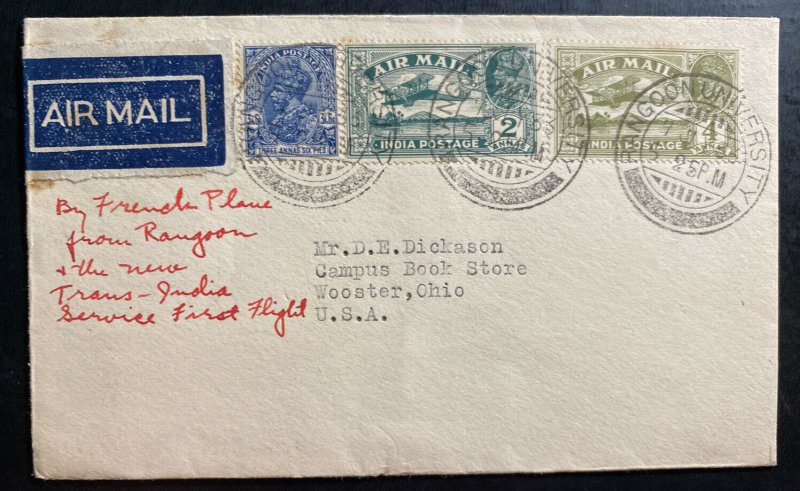 AIR MAIL
INDIA POSTAGE
THREE ANNAS SIX PIES
AIR MAIL
2
ANNAS
INDIA POSTAGE
AIR MAIL
4
ANNAS
INDIA POSTAGE
RANGOON UNIVERSITY
RANGOON UNIVERSITY
2-25P.M
By French Plane
from Rangoon
& the new
Trans-India
Service First Flight
Mr.D.E.Dickason
Campus Book Store
Wooster,Ohio
U.S.A.